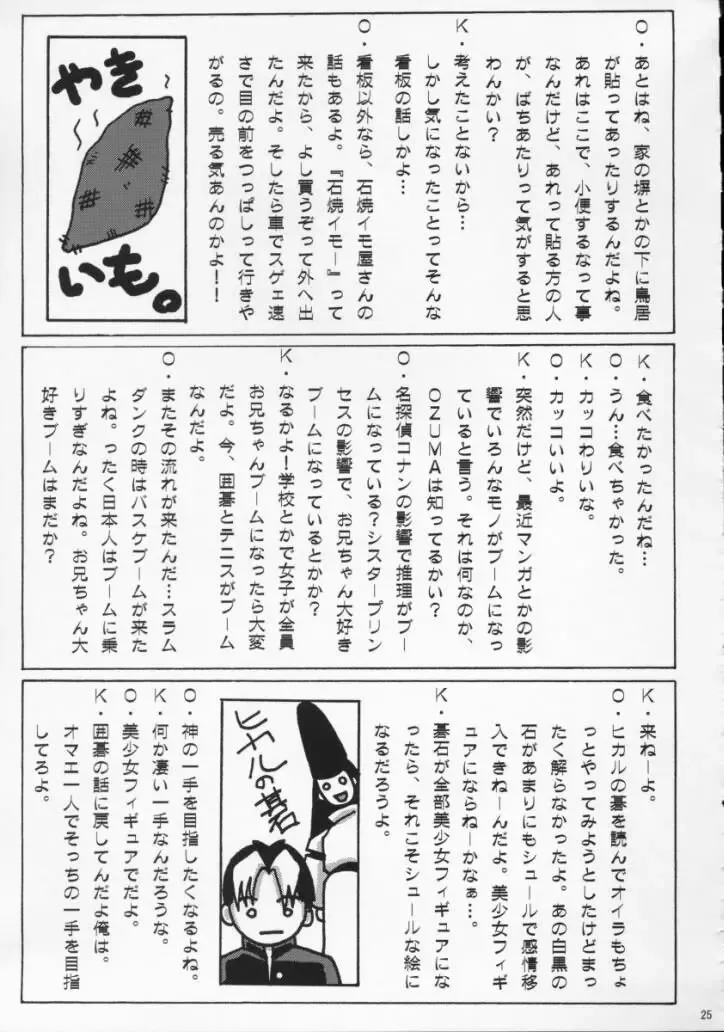 O・あとはね、家の塀とかの下に鳥居
が貼ってあったりするんだよね。
あれはここで、小便するなって事
なんだけど、あれって貼る方の人
が、ばちあたりって気がすると思
わんかい？
K・考えたことないから…
しかし気になったことってそんな
看板の話しかよ…
O・看板以外なら、石焼イモ屋さんの
話もあるよ。『石焼イモー』って
来たから、よし買うぞって外へ出
たんだよ。そしたら車でスゲェ速
さで目の前をつっぱしって行きや
がるの。売る気あんのかよ！！
やき
いも。
K・食べたかったんだね…
O・うん…食べちゃかった。
K・カッコわりいな。
O・カッコいいよ。
K・突然だけど、最近マンガとかの影
響でいろんなモノがブームになっ
ていると言う。それは何なのか、
OZUMAは知ってるかい？
O・名探偵コナンの影響で推理がブー
ムになっている？シスタープリン
セスの影響で、お兄ちゃん大好き
ブームになっているとかか？
K・なるかよ！学校とかで女子が全員
お兄ちゃんブームになったら大変
だよ。今、囲碁とテニスがブーム
なんだよ。
O・またその流れが来たんだ…スラム
ダンクの時はバスケブームが来た
よね。ったく日本人はブームに乗
りすぎなんだよね。お兄ちゃん大
好きブームはまだか？
K・来ねーよ。
O・ヒカルの碁を読んでオイラもちょ
っとやってみようとしたけどまっ
たく解らなかったよ。あの白黒の
石があまりにもシュールで感情移
入できねーんだよ。美少女フィギ
ュアにならねーかなぁ…。
K・碁石が全部美少女フィギュアにな
ったら、それこそシュールな絵に
なるだろうよ。
ヒカルの碁石
O・神の一手を目指したくなるよね。
K・何か凄い一手なんだろうな。
O・美少女フィギュアでだよ。
K・囲碁の話に戻してんだよ俺は。
オマエ一人でそっちの一手を目指
してろよ。
25